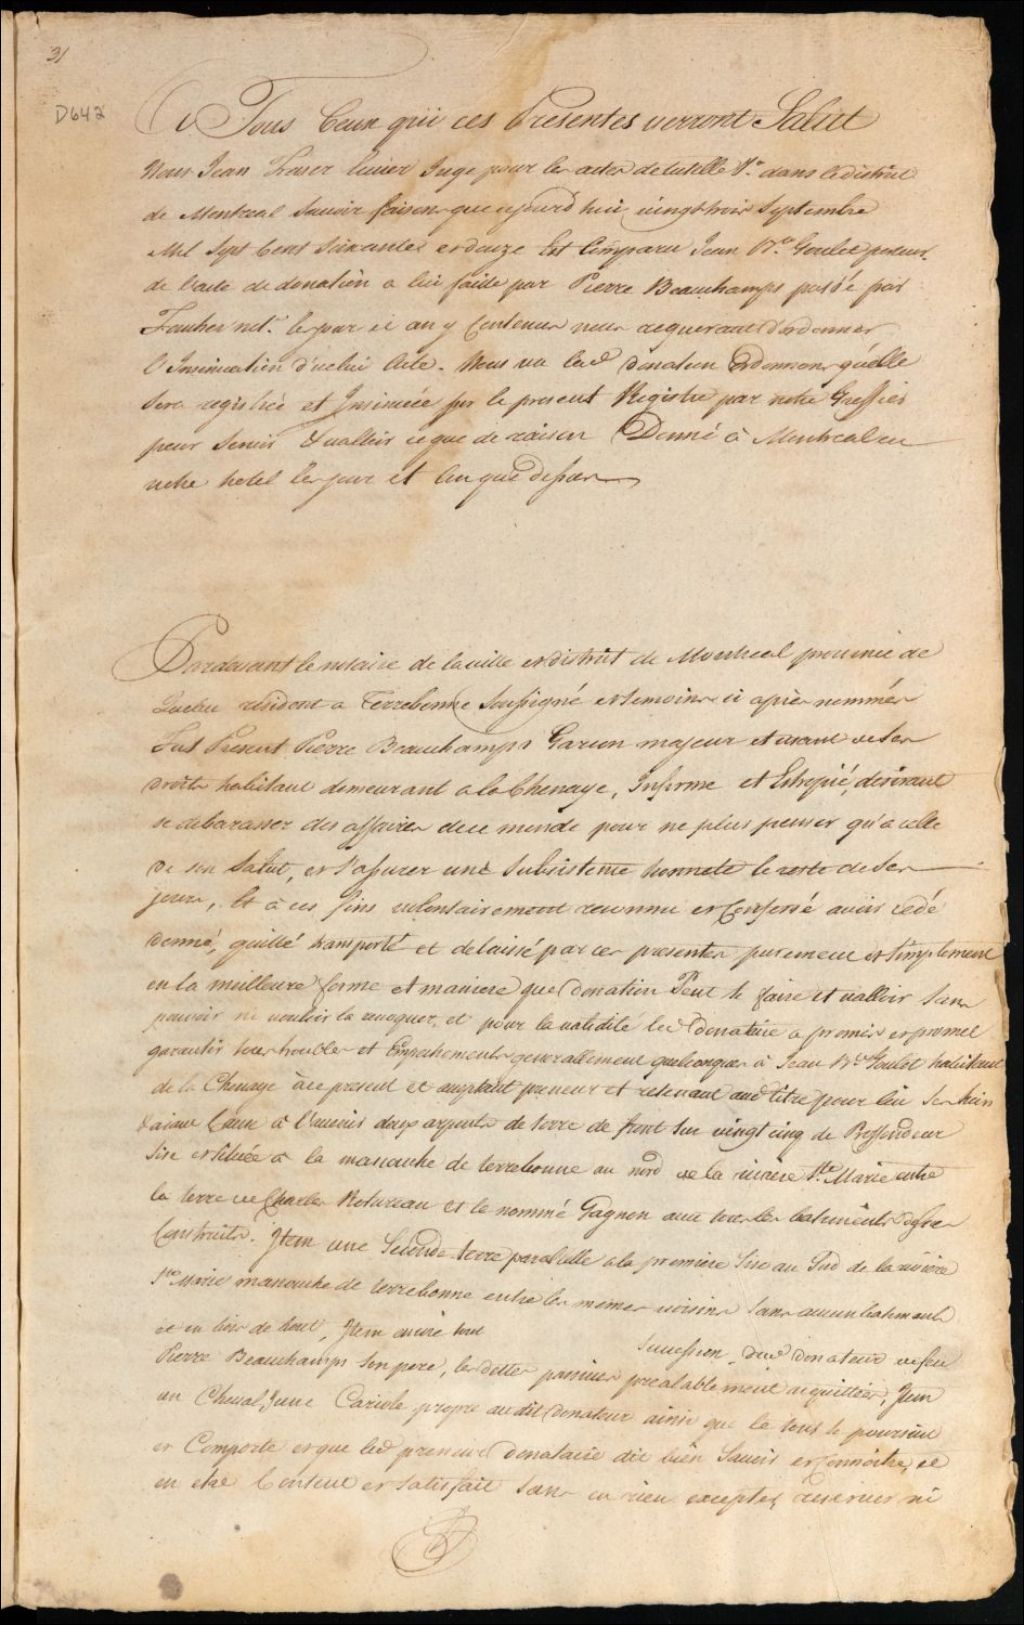 31
D642
A Tous Ceux qui ces Presentes verront Salut
Nous Jean Fraser Ecuier Juge pour les actes de tutelle &a. dans le district
de Montreal Savoir faisons que aujourd'hui vingt trois Septembre
Mil Sept Cent Soixante et douze Est Comparu Jean Bte. Goulet porteur
de l'acte de donation a lui faite par Pierre Beauchamps passé par
Faucher not. les jour et an y Contenus nous requerant d'ordonner
l'Insinuation d'icelui Acte. Nous vu lad donation Ordonnons qu'elle
Sera registrée et Insinuée sur le present Registre par notre Greffier
pour Servir & valloir ce que de raison Donné à Montreal en
notre hotel les jour et an que dessus
Pardevant le notaire de la ville et district de Montreal province de
Quebec résident a Terrebonne Soussigné et temoins ci après nommés
Fut Present Pierre Beauchamps Garcon majeur et usant de ses
droits habitant demeurant a la Chenaye, Infirme et Estropié, desirant
se debarasser des affaires de ce monde pour ne plus penser qu'a celle
de son Salut, et s'assurer une Subsistence honnete le reste de ses
jours, Et à ces fins volontairement reconnu et Confessé avoir cedé
donné, quitté transporté et delaissé par ces presentes purement et simplement
en la meilleure forme et maniere que donation Peut se faire et valloir sans
pouvoir ni vouloir la revoquer, et pour la validité led donateur a promis et promet
garantir tous troubles et Empechements generallement quelconques à Jean Bte Goulet habitant
de la Chenaye à ce present et acceptant preneur et retenant aud titre pour lui Ses hoirs
& aiant Cause à l'avenir deux arpents de terre de front sur vingt cinq de Proffondeur
Sise et située à la manauke de terrebonne au nord de la riviere Ste. Marie entre
la terre de Charles Rotureau et le nommé Gagnon avec tous les batiments dessus
Construits. Item une Seconde terre paralelle a la premiere Sise au Sud de la riviere
Ste Marie manauke de terrebonne entre les memes voisins Sans aucun batiments
et en bois de bout, Item avec tout Succession dud donateur de feu
Pierre Beauchamps Son pere, les dettes passives prealablement acquittées, Item
un Cheval, & une Cariole propre audit donateur ainsi que le tout se poursuit
et Comporte et que led preneur donataire dit bien Savoir et Connoitre, et
en etre Content et satisfait Sans en rien excepter, reserver ni